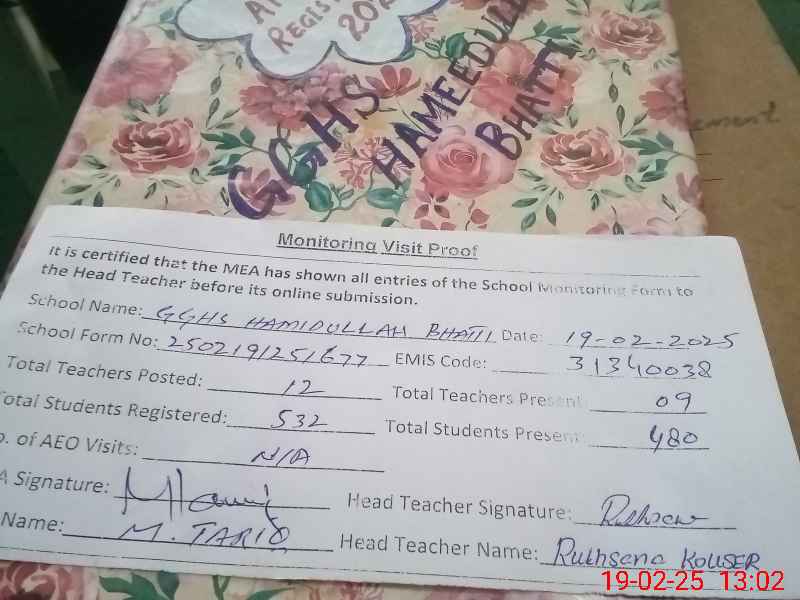 REGIS
GGHS
HAMEEDULL
BHATTI
Monitoring Visit Proof
It is certified that the MEA has shown all entries of the School Monitoring Form to
the Head Teacher before its online submission.
School Name: GGHS HAMIDULLAH BHATTI Date: 19-02-2025
School Form No: 2502191251677 EMIS Code: 31340038
Total Teachers Posted: 12 Total Teachers Present: 09
otal Students Registered: 532 Total Students Present: 480
o. of AEO Visits: N/A
A Signature: Head Teacher Signature:
Name: M. TARIQ Head Teacher Name: Rukhsana KOUSER
19-02-25 13:02